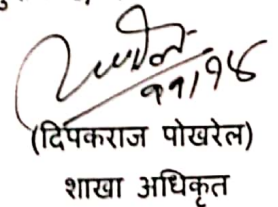 ११/१४
(दिपकराज पोखरेल)
शाखा अधिकृत